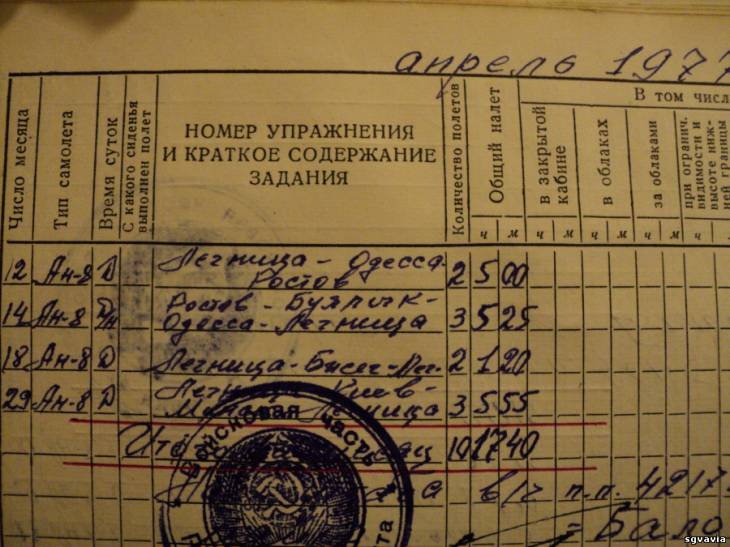 апрель 1977
Число месяца
Тип самолета
Время суток
С какого сиденья выполнен полет
НОМЕР УПРАЖНЕНИЯ
И КРАТКОЕ СОДЕРЖАНИЕ
ЗАДАНИЯ
Количество полетов
Общий налет
В том числ
в закрытой кабине
в облаках
за облаками
при огранич. видимости и высоте ниж- ней границы
ч м ч м ч м ч м ч
12 Ан-8 Д Легница - Одесса-
Ростов 2 5 00
14 Ан-8 Ростов -
Одесса - Легница 3 5 25
18 Ан-8 Д Легница - 2 1 20
29 Ан-8 Д Легница Киев-
Легница 3 5 55
10 17 40
в/ч п.п. 4217
Войсковая часть
sgvavia